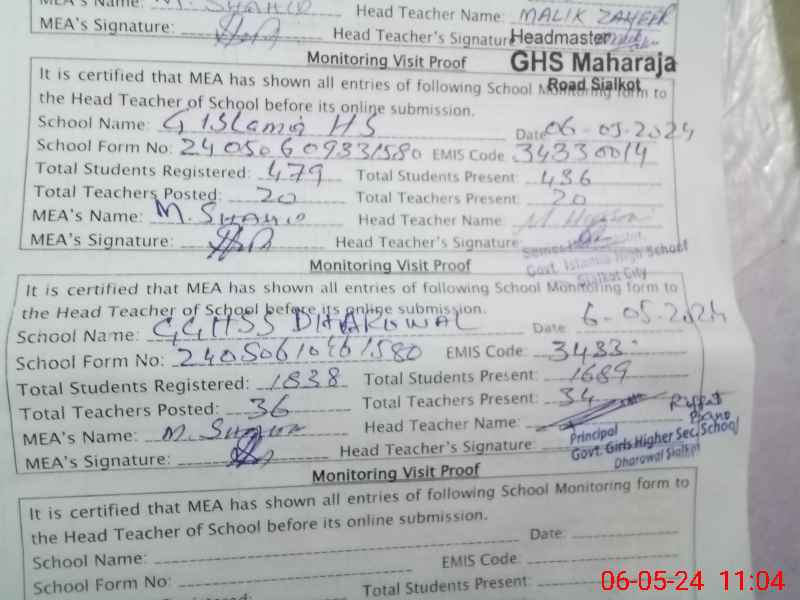 MEA's Name: M. SHAHID Head Teacher Name: MALIK ZAHEER
MEA's Signature: Head Teacher's Signature
Headmaster
GHS Maharaja
Road Sialkot
Monitoring Visit Proof
It is certified that MEA has shown all entries of following School Monitoring form to
the Head Teacher of School before its online submission.
School Name: G ISLamia HS Date 06-05-2024
School Form No: 24050609331580 EMIS Code 34330014
Total Students Registered: 479 Total Students Present: 436
Total Teachers Posted: 20 Total Teachers Present: 20
MEA's Name: M. SHAHID Head Teacher Name: M.
MEA's Signature: Head Teacher's Signature
Govt. Islamia High School
Sialkot City
Monitoring Visit Proof
It is certified that MEA has shown all entries of following School Monitoring form to
the Head Teacher of School before its online submission.
School Name: GGHSS DHAROWAL Date 6-05-2024
School Form No: 24050610461580 EMIS Code: 3433
Total Students Registered: 1838 Total Students Present: 1689
Total Teachers Posted: 36 Total Teachers Present: 34
MEA's Name: M. SHAHID Head Teacher Name: Riffat Bano
MEA's Signature: Head Teacher's Signature:
Principal
Govt. Girls Higher Sec. School
Dharowal Sialkot
Monitoring Visit Proof
It is certified that MEA has shown all entries of following School Monitoring form to
the Head Teacher of School before its online submission.
School Name: Date:
School Form No: EMIS Code:
Total Students
06-05-24 11:04